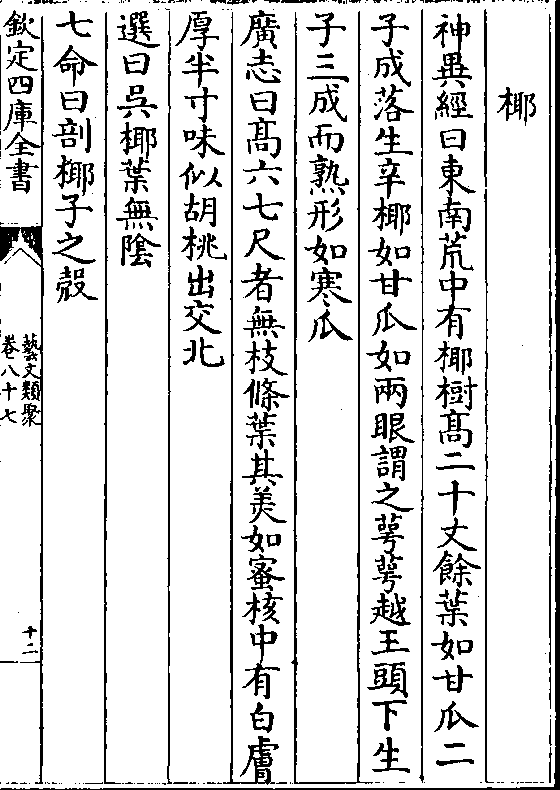 椰
神異經曰東南荒中有椰樹高二十丈餘葉如甘瓜二
子成落生辛椰如甘瓜如兩眼謂之萼萼越王頭下生
子三成而熟形如寒瓜
廣志曰高六七尺者無枝條葉其美如蜜核中有白膚
厚半寸味似胡桃出交北
選曰呉椰葉無隂
七命曰剖椰子之殻
欽定四庫全書
藝文類聚
卷八十七
十二